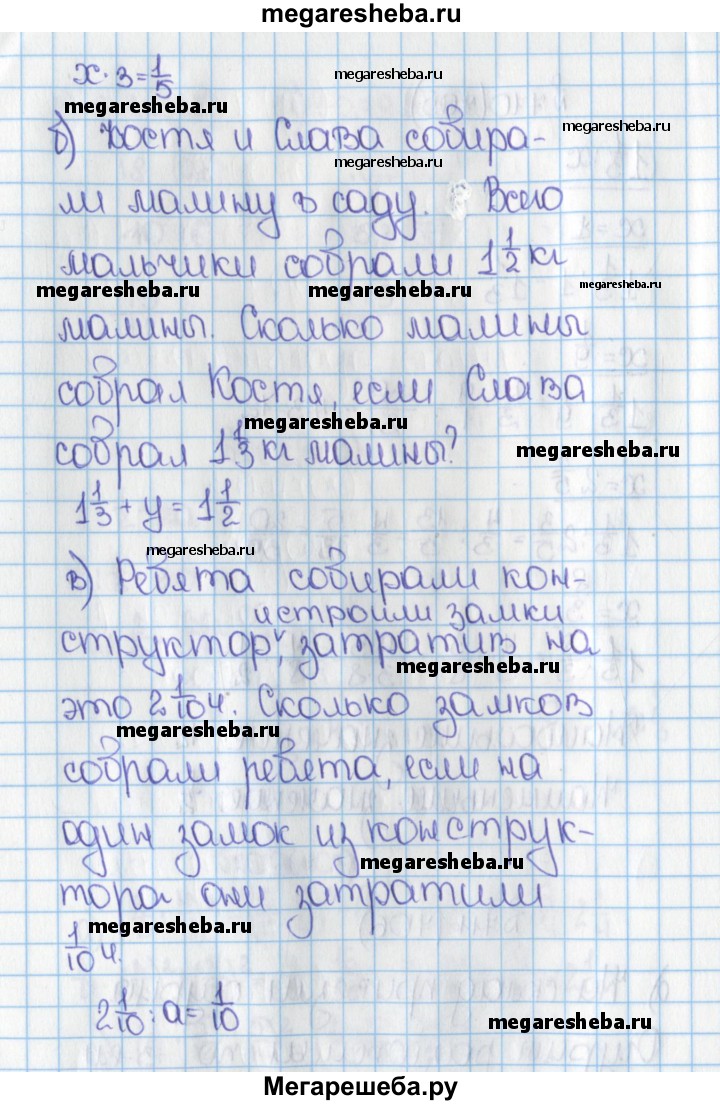 megaresheba.ru
х · 3 = 1/5
megaresheba.ru
megaresheba.ru
б) Костя и Слава собира-
megaresheba.ru
megaresheba.ru
ли малину в саду. Всего
мальчики собрали 1 1/2 кг
megaresheba.ru
megaresheba.ru
megaresheba.ru
малины. Сколько малины
собрал Костя, если Слава
megaresheba.ru
собрал 1 1/3 кг малины?
megaresheba.ru
1 1/3 + y = 1 1/2
megaresheba.ru
в) Ребята собирали кон-
и строили замки
структор, затратив на
megaresheba.ru
это 2 1/10 ч. Сколько замков
megaresheba.ru
собрали ребята, если на
один замок из конструк-
megaresheba.ru
тора они затратили
megaresheba.ru
1/10 ч.
2 1/10 : a = 1/10
megaresheba.ru
Мегарешеба.ру